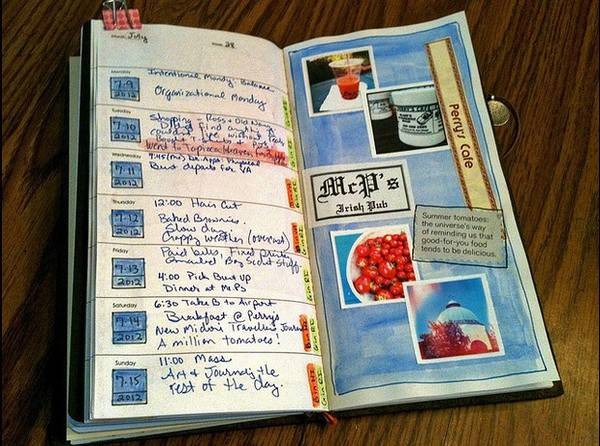 Month: July
Week: 28
Monday
7-9
2012
Intentional Monday: Balance
Organizational Monday
Tuesday
7-10
2012
Shopping - Ross & Old Navy
Didn't find another
Went to Tapioca
Wednesday
7-11
2012
Burt departs for VA
Thursday
7-12
2012
12:00 Hair Cut
Baked Brownies.
Slow day
Crappy weather (overcast)
Friday
7-13
2012
Paid bills, fixed printer
Boy Scout stuff
4:00 Pick Burt up
Dinner at McP's
Saturday
7-14
2012
6:30 Take B to Airport
Breakfast @ Perry's
New Midori Travellers Journal
A million tomatoes!
Sunday
7-15
2012
11:00 Mass
Art & Journaling the
rest of the day.
PERRY'S CAFE
Perry's Cafe
McP's
Irish Pub
Summer tomatoes:
the universe's way
of reminding us that
good-for-you food
tends to be delicious.